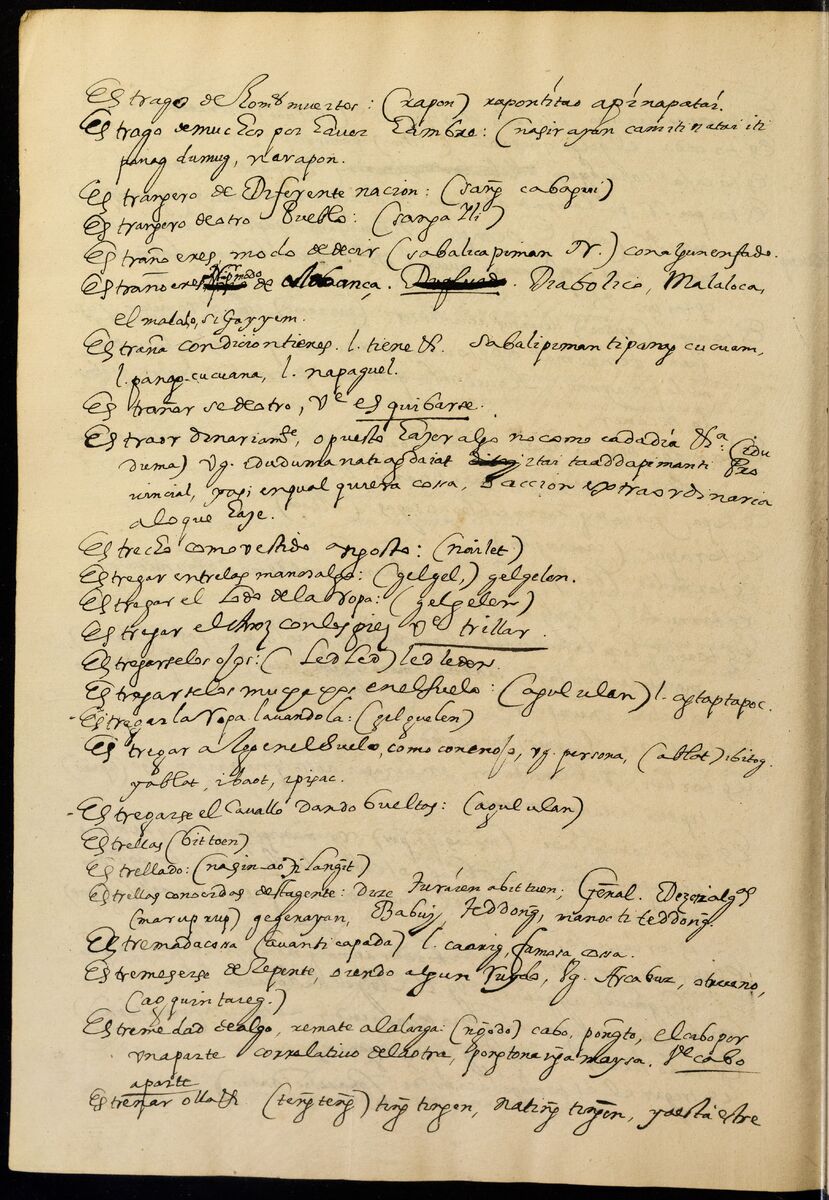 Estrago de homs muertos: (rapon) rapontitao apinapatai.
Estrago de muchos por haver hambre: (nasirayan camiti natai iti
panag dumug, narapon.
Estrangero de Diferente nacion: (sang̃ cabagui)
Estrangero de otro Pueblo: (sanga Ili)
Estraño eres, modo de decir (sabalicapiman N.) con algun enfado.
Estraño eres de Alabança. Diabolico, Malaloca,
el malaho, si Gayyem.
Estraña condicion tienes. l. tiene &. sabalipiman tipang cucuam,
l. pang cucuana, l. napaguel.
Estrañar se de otro, Ve esquibarse.
Estraordinariamte, o puesto hazer algo no como cada dia &a: (idu
duma) vg. iduduma natragdaiat itai taaddapimanti Pro
vincial, yasi en qual quiera cossa, o accion extraordinaria
a lo que haze.
Estrecho como vestido angosto: (nailet)
Estregar entre las manos algo: (gelgel,) gelgelen.
Estregar el Lodo de la ropa: (gelgelen)
Estregar el Arroz con los pies Ve trillar.
Estregarse los ojos: (Ledled) ledleden.
Estregarse los muchachos en el suelo: (agulular) l. agtaptapoc.
Estregar la ropa lavandola: (gelguelen)
Estregar algo en el suelo, como con enojo, vg. persona, (ablat) ibitog
yablat, ibaot, ipisac.
Estregarse el Cavallo dando bueltas: (agulular)
Estrellas (bittoen)
Estrellado: (nasin ao ji Langit)
Estrellas conocidas de sta gente: Dize abittuen; Genal. Dezezialgos
(maruprup) gegenayan, Babuy Teddong̃, rianoc ti teddong̃.
Estremada cossa (avanti capada) l. caarig, famosa cossa.
Estremeserse de Repente, oiendo algun Ruydo, Vg. Arcabuz, o trueno,
(agquintareg.)
Estremedad de algo, remate ala larga: (ng̃odo) cabo, pong̃to, el cabo por
una parte correlativo de la otra, pong̃tona ing̃a maysa. Ve cabo
aparte
Estrenar olla & (teng̃teng̃) ting̃ting̃en, nating̃ting̃en, ya esta estre